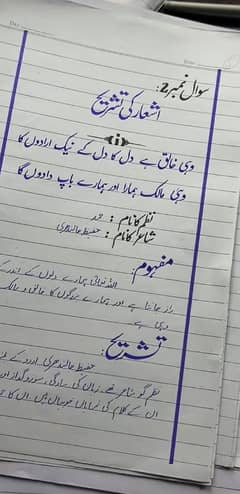 سوال نمبر 2:
اشعار کی تشریح
(i)
وہی خالق ہے دل کا دل کے نیک ارادوں کا
وہی مالک ہمارا اور ہمارے باپ دادوں کا
نظم کا نام : حمد
شاعر کا نام : حفیظ جالندھری
مفہوم:
اللہ تعالیٰ ہمارے دلوں کے اندر
راز جانتا ہے اور ہمارے بزرگوں کا خالق و مالک
وہی ہے
تشریح:
حفیظ جالندھری اردو کے
نظم گو شاعر تھے۔ زبان کی سادگی، سوز و گداز اور
ان کے کلام کی نمایاں خوبیاں ہیں ان کا